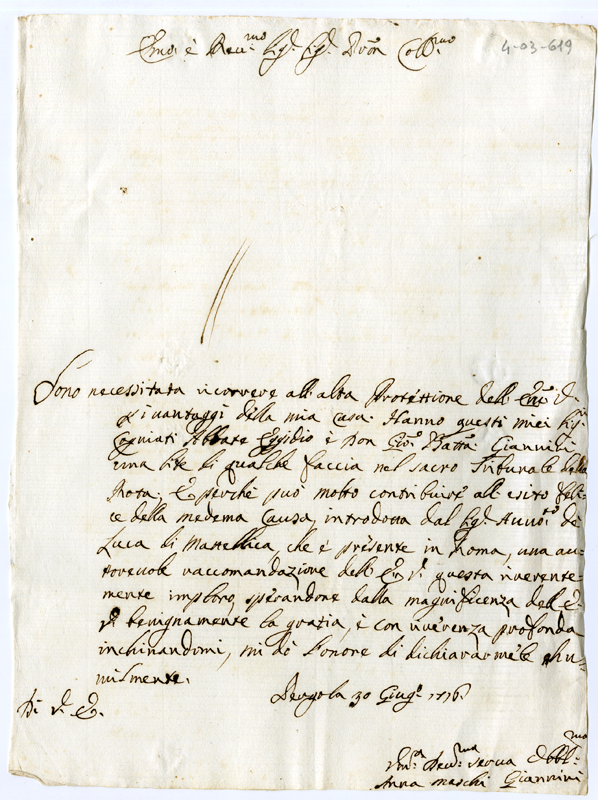 4-03-619
Emo. e Rev.mo Sig.r Sig.r Pron Coll.mo
Sono necessitata ricorrere all'alta Protettione dell'Em. V.
p i vantaggi della mia casa. Hanno questi miei Sig.ri
Cogniati Abbate Egidio è Don Gio: Batta. Giannini
una lite di qualche faccia nel sacro Tribunale della
Rota; E perché può molto contribuire all'esito feli-
ce della medema causa, introdotta dal Sig.r de
Luca di Mattellica, che è presente in Roma, una au-
torevole raccomandazione dell'Em. V. questa riverente-
mente imploro, sperandone dalla magnificenza dell'E.
V. benignamente la grazia, è con riverenza profonda
inchinandomi, mi dò l'onore di dichiararmele hu-
milmente.
Pergola 30 Giug.o
Di V. Em.
Dev.ma serva Obbl.ma
Anna Maschi Giannini